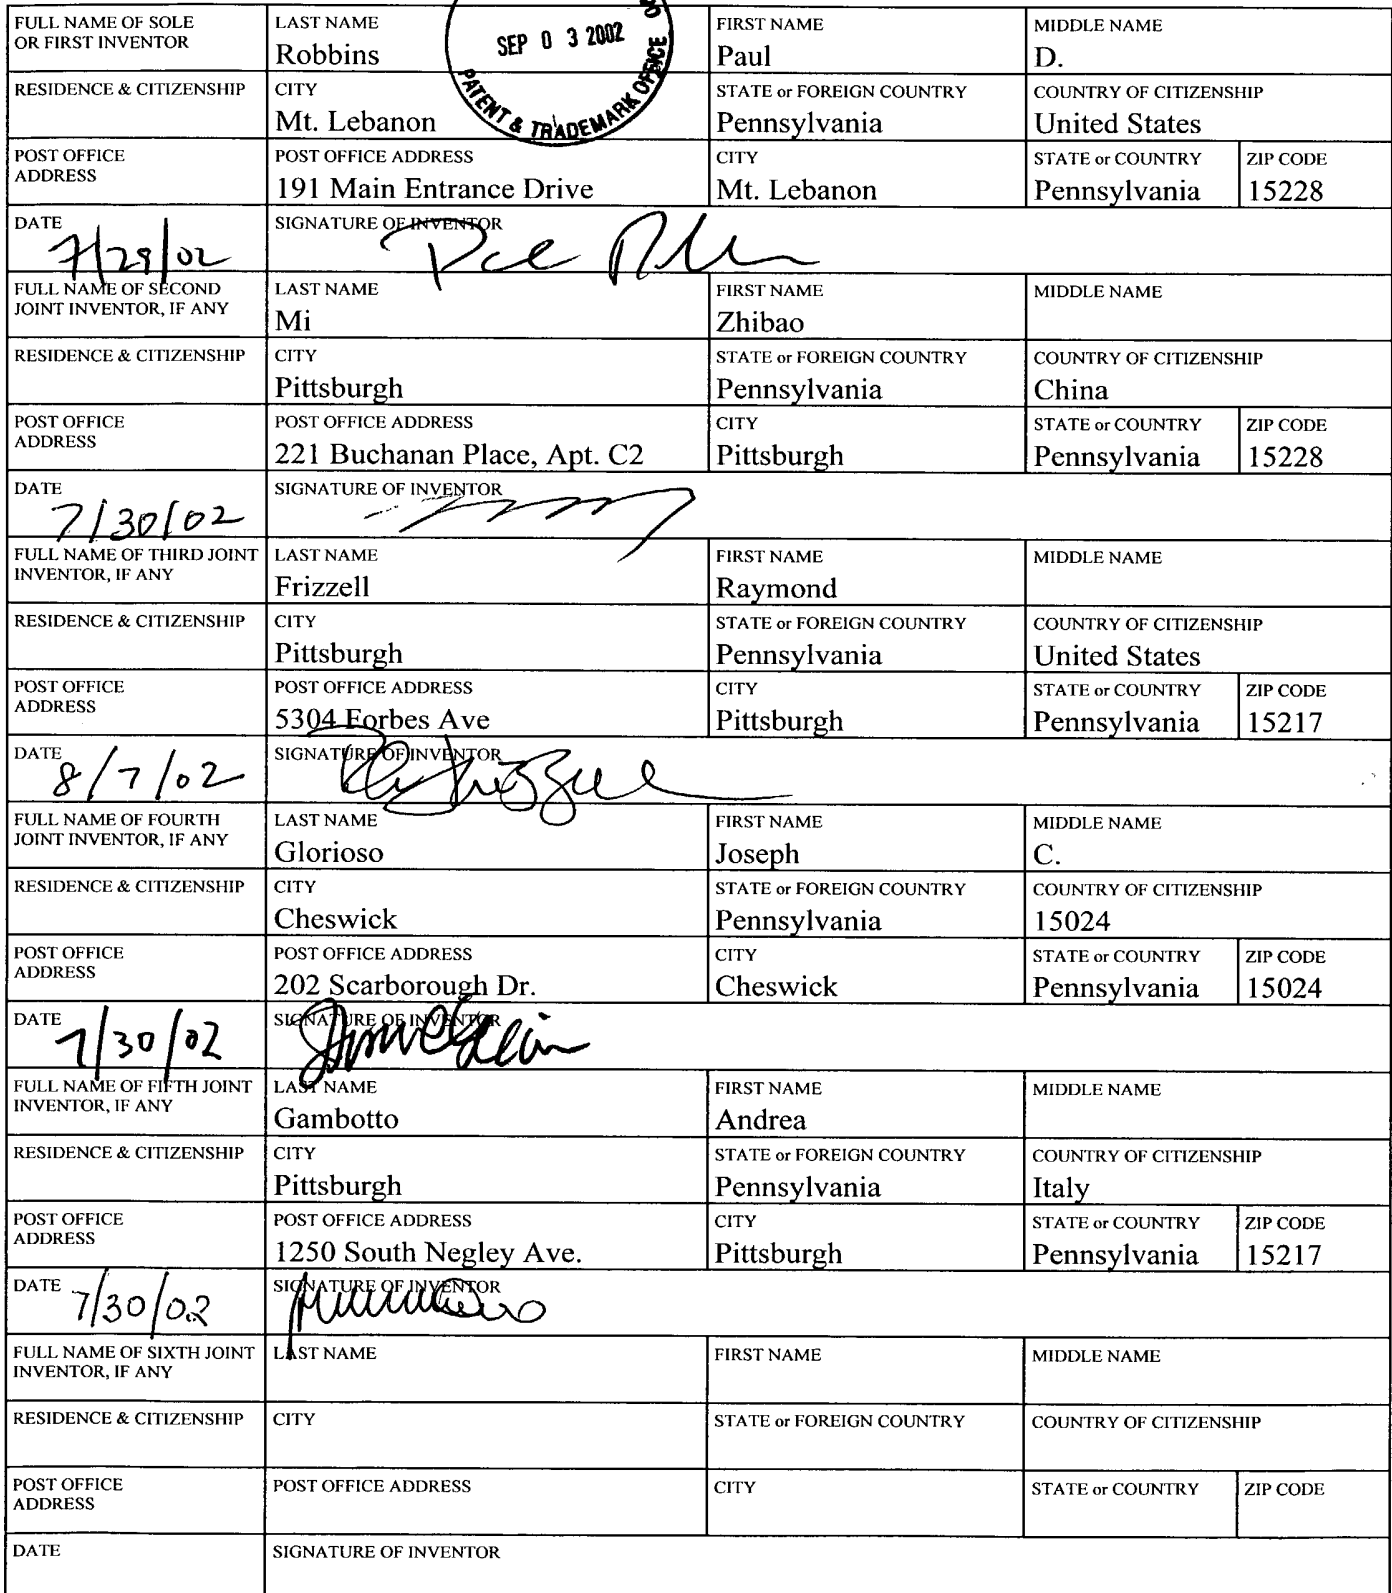 FULL NAME OF SOLE OR FIRST INVENTOR
LAST NAME
Robbins
SEP 0 3 2002
PATENT & TRADEMARK OFFICE
FIRST NAME
Paul
MIDDLE NAME
D.
RESIDENCE & CITIZENSHIP
CITY
Mt. Lebanon
STATE or FOREIGN COUNTRY
Pennsylvania
COUNTRY OF CITIZENSHIP
United States
POST OFFICE ADDRESS
POST OFFICE ADDRESS
191 Main Entrance Drive
CITY
Mt. Lebanon
STATE or COUNTRY
Pennsylvania
ZIP CODE
15228
DATE
7/29/02
SIGNATURE OF INVENTOR
FULL NAME OF SECOND JOINT INVENTOR, IF ANY
LAST NAME
Mi
FIRST NAME
Zhibao
MIDDLE NAME
RESIDENCE & CITIZENSHIP
CITY
Pittsburgh
STATE or FOREIGN COUNTRY
Pennsylvania
COUNTRY OF CITIZENSHIP
China
POST OFFICE ADDRESS
POST OFFICE ADDRESS
221 Buchanan Place, Apt. C2
CITY
Pittsburgh
STATE or COUNTRY
Pennsylvania
ZIP CODE
15228
DATE
7/30/02
SIGNATURE OF INVENTOR
FULL NAME OF THIRD JOINT INVENTOR, IF ANY
LAST NAME
Frizzell
FIRST NAME
Raymond
MIDDLE NAME
RESIDENCE & CITIZENSHIP
CITY
Pittsburgh
STATE or FOREIGN COUNTRY
Pennsylvania
COUNTRY OF CITIZENSHIP
United States
POST OFFICE ADDRESS
POST OFFICE ADDRESS
5304 Forbes Ave
CITY
Pittsburgh
STATE or COUNTRY
Pennsylvania
ZIP CODE
15217
DATE
8/7/02
SIGNATURE OF INVENTOR
FULL NAME OF FOURTH JOINT INVENTOR, IF ANY
LAST NAME
Glorioso
FIRST NAME
Joseph
MIDDLE NAME
C.
RESIDENCE & CITIZENSHIP
CITY
Cheswick
STATE or FOREIGN COUNTRY
Pennsylvania
COUNTRY OF CITIZENSHIP
15024
POST OFFICE ADDRESS
POST OFFICE ADDRESS
202 Scarborough Dr.
CITY
Cheswick
STATE or COUNTRY
Pennsylvania
ZIP CODE
15024
DATE
7/30/02
SIGNATURE OF INVENTOR
FULL NAME OF FIFTH JOINT INVENTOR, IF ANY
LAST NAME
Gambotto
FIRST NAME
Andrea
MIDDLE NAME
RESIDENCE & CITIZENSHIP
CITY
Pittsburgh
STATE or FOREIGN COUNTRY
Pennsylvania
COUNTRY OF CITIZENSHIP
Italy
POST OFFICE ADDRESS
POST OFFICE ADDRESS
1250 South Negley Ave.
CITY
Pittsburgh
STATE or COUNTRY
Pennsylvania
ZIP CODE
15217
DATE
7/30/02
SIGNATURE OF INVENTOR
FULL NAME OF SIXTH JOINT INVENTOR, IF ANY
LAST NAME
FIRST NAME
MIDDLE NAME
RESIDENCE & CITIZENSHIP
CITY
STATE or FOREIGN COUNTRY
COUNTRY OF CITIZENSHIP
POST OFFICE ADDRESS
POST OFFICE ADDRESS
CITY
STATE or COUNTRY
ZIP CODE
DATE
SIGNATURE OF INVENTOR